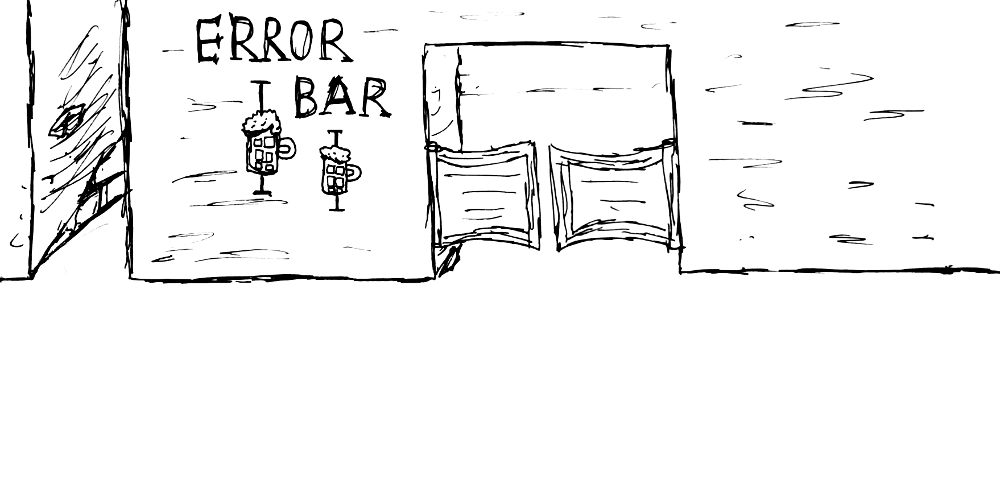 ERROR
BAR